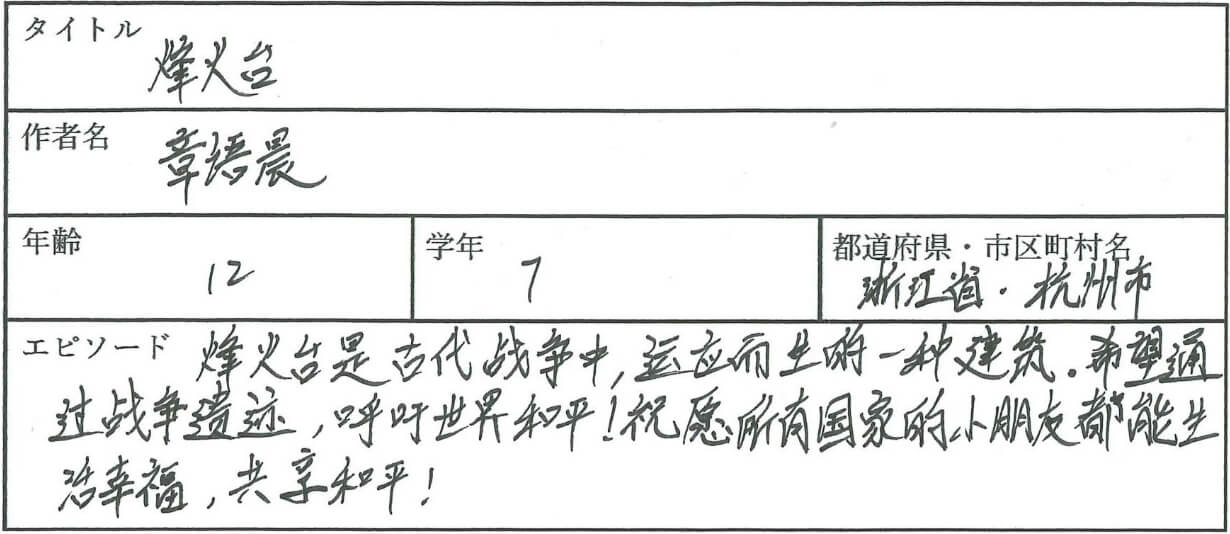 タイトル
烽火台
作者名
章语晨
年齢
12
学年
7
都道府県・市区町村名
浙江省・杭州市
エピソード
烽火台是古代战争中,运应而生的一种建筑。希望通
过战争遗迹,呼吁世界和平!祝愿所有国家的小朋友都能生
活幸福,共享和平!